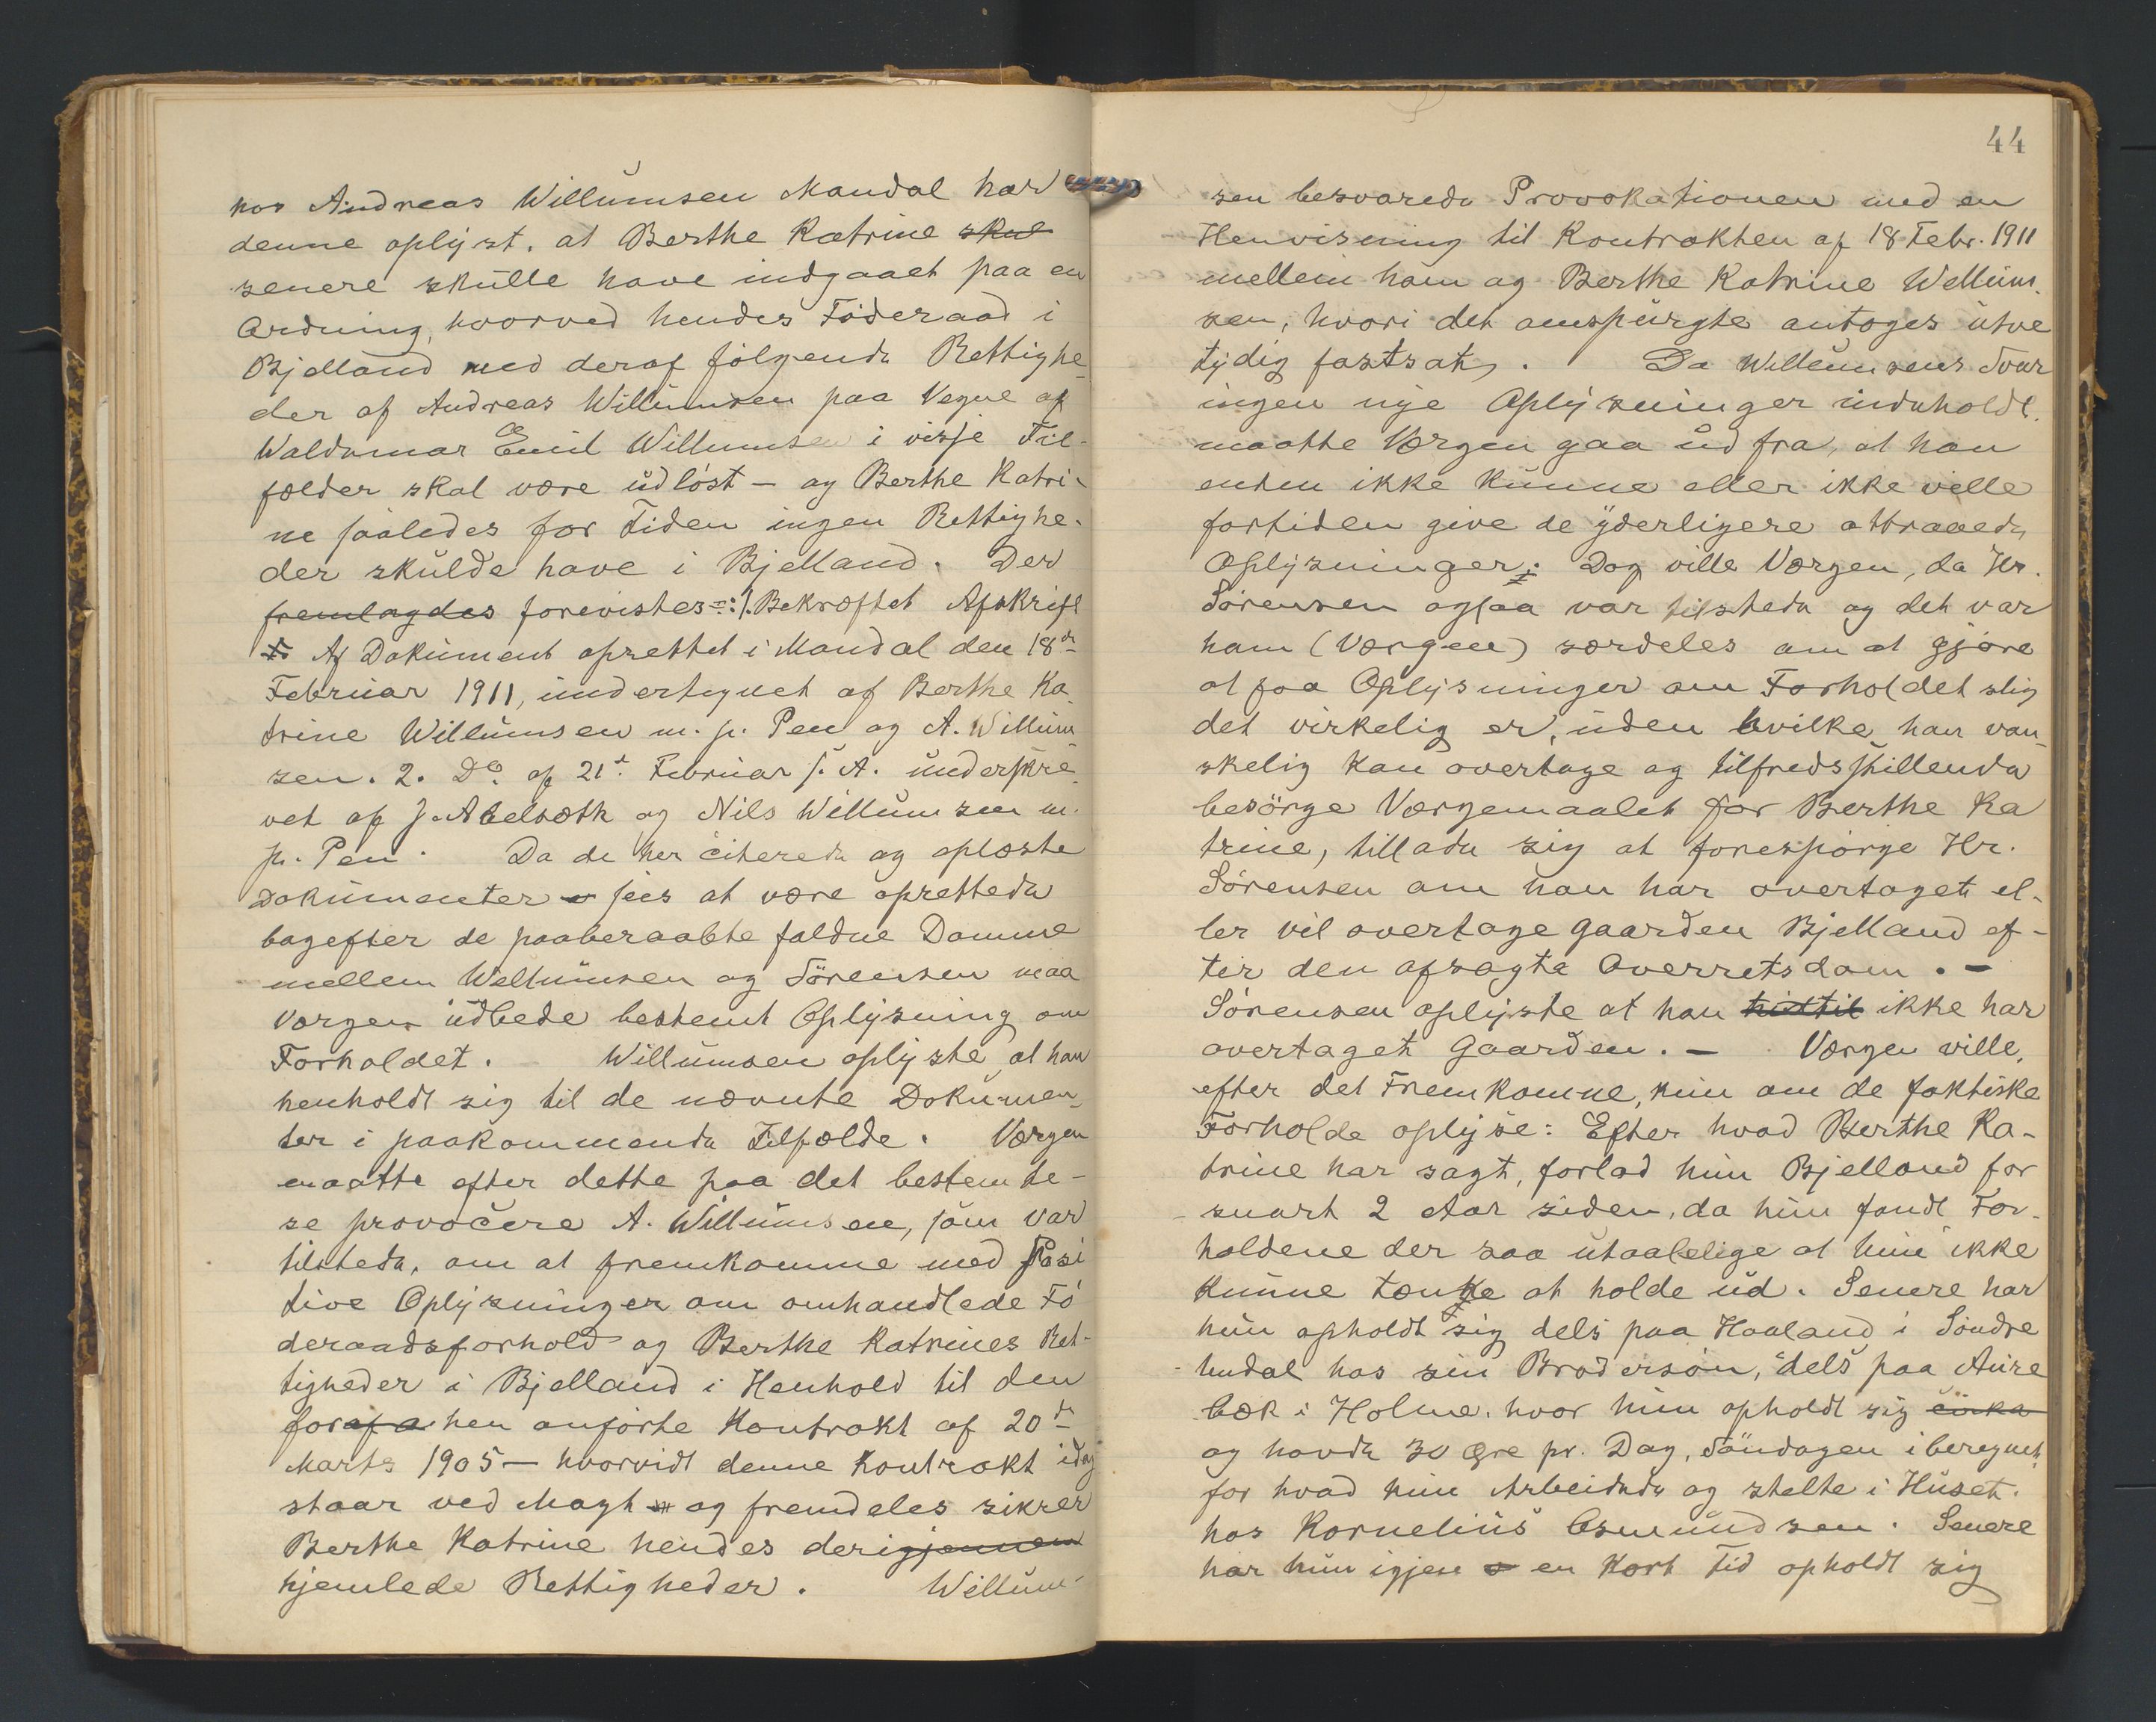 hos Andreas Willumsen Mandal har
denne oplyst, at Berthe Katrine skul
senere skulle have indgaaet paa en
Ordning, hvorved hendes Föderaad i
Bjelland med deraf fölgende Rettighe-
der af Andreas Willumsen paa Vegne af
Waldemar Emil Willumsen i visse Til-
fælder skal være udlöst – og Berthe Katri-
ne saaledes for Tiden ingen Rettighe-
der skulde have i Bjelland. Der
fremlagdes forevistes =: 1. Bekræftet Afskrift
Af Dokument oprettet i Mandal den 18de
Februar 1911, undertegnet af Berthe Ka
trine Willumsen m. p. Pen og A. Willum
sen. 2. Do. af 21de Februar s. A. underskre-
vet af J. Abelsæth og Nils Willumsen m.
p. Pen. Da de her citerede og oplæste
Dokumenter sees at være oprettede
bagefter de paaberaabte faldne Domme
mellem Willumsen og Sörensen maa
Værgen udbede bestemt Oplysning om
Forholdet. Willumsen oplyste, at han
henholdt sig til de nævnte Dokumen-
ter i paakommende Tilfælde. Værgen
maatte efter dette paa det bestemte-
se provocere A. Willumsen, som var
tilstede, om at fremkomme med Posi
tive Oplysninger om omhandlede Fö
deraadsforhold og Berthe Katrines Ret-
tigheder i Bjelland i Henhold til den
foran hen anförte Kontrakt af 20de
Marts 1905 – hvorvidt denne Kontrakt idag
staar ved Magt og fremdeles sikrer
Berthe Katrine hendes derigjennem
hjemlede Rettigheder. Willum-
44
sen besvarede Provokationen med en
Henvisning til Kontrakten af 18 Febr. 1911
mellem ham og Berthe Katrine Willum-
sen, hvori det omspurgte antoges utve
tydig fastsat. Da Willumsens Svar
ingen nye Oplysninger indeholdt.
maatte Værgen gaa ud fra, at han
enten ikke kunne eller ikke ville
fortiden give de yderligere attraaede
Oplysninger; Dog ville Værgen, da Hr.
Sörensen ogsaa var tilstede og det var
ham (Værgen) særdeles om at gjöre
at faa Oplysninger om Forholdet slig
det virkelig er, uden hvilke han van-
skelig kan overtage og tilfredsstillende
besörge Værgemaalet for Berthe Ka
trine, tillade sig at forespörge Hr.
Sörensen om han har overtaget el-
ler vil overtage Gaarden Bjelland ef-
ter den afsagte Overretsdom. –
Sörensen oplyste at han hidtil ikke har
overtaget Gaarden. – Værgen ville,
efter det Fremkomne, kun om de faktiske
Forholde oplyse: Efter hvad Berthe Ka-
trine har sagt, forlod hun Bjelland for
snart 2 Aar siden, da hun fandt For-
holdene der saa utaalelige at hun ikke
kunne tænke at holde ud. Senere har
hun opholdt sig dels paa Haaland i Söndre
Undal hos sin Brodersön, dels paa Aure
bæk i Holme, hvor hun opholdt sig cirka
og havde 30 Øre pr. Dag, Söndagen iberegnet,
for hvad hun Arbeidede og stelte i Huset.
hos Kornelius Osmundsen. Senere
har hun igjen en kort Tid opholdt sig